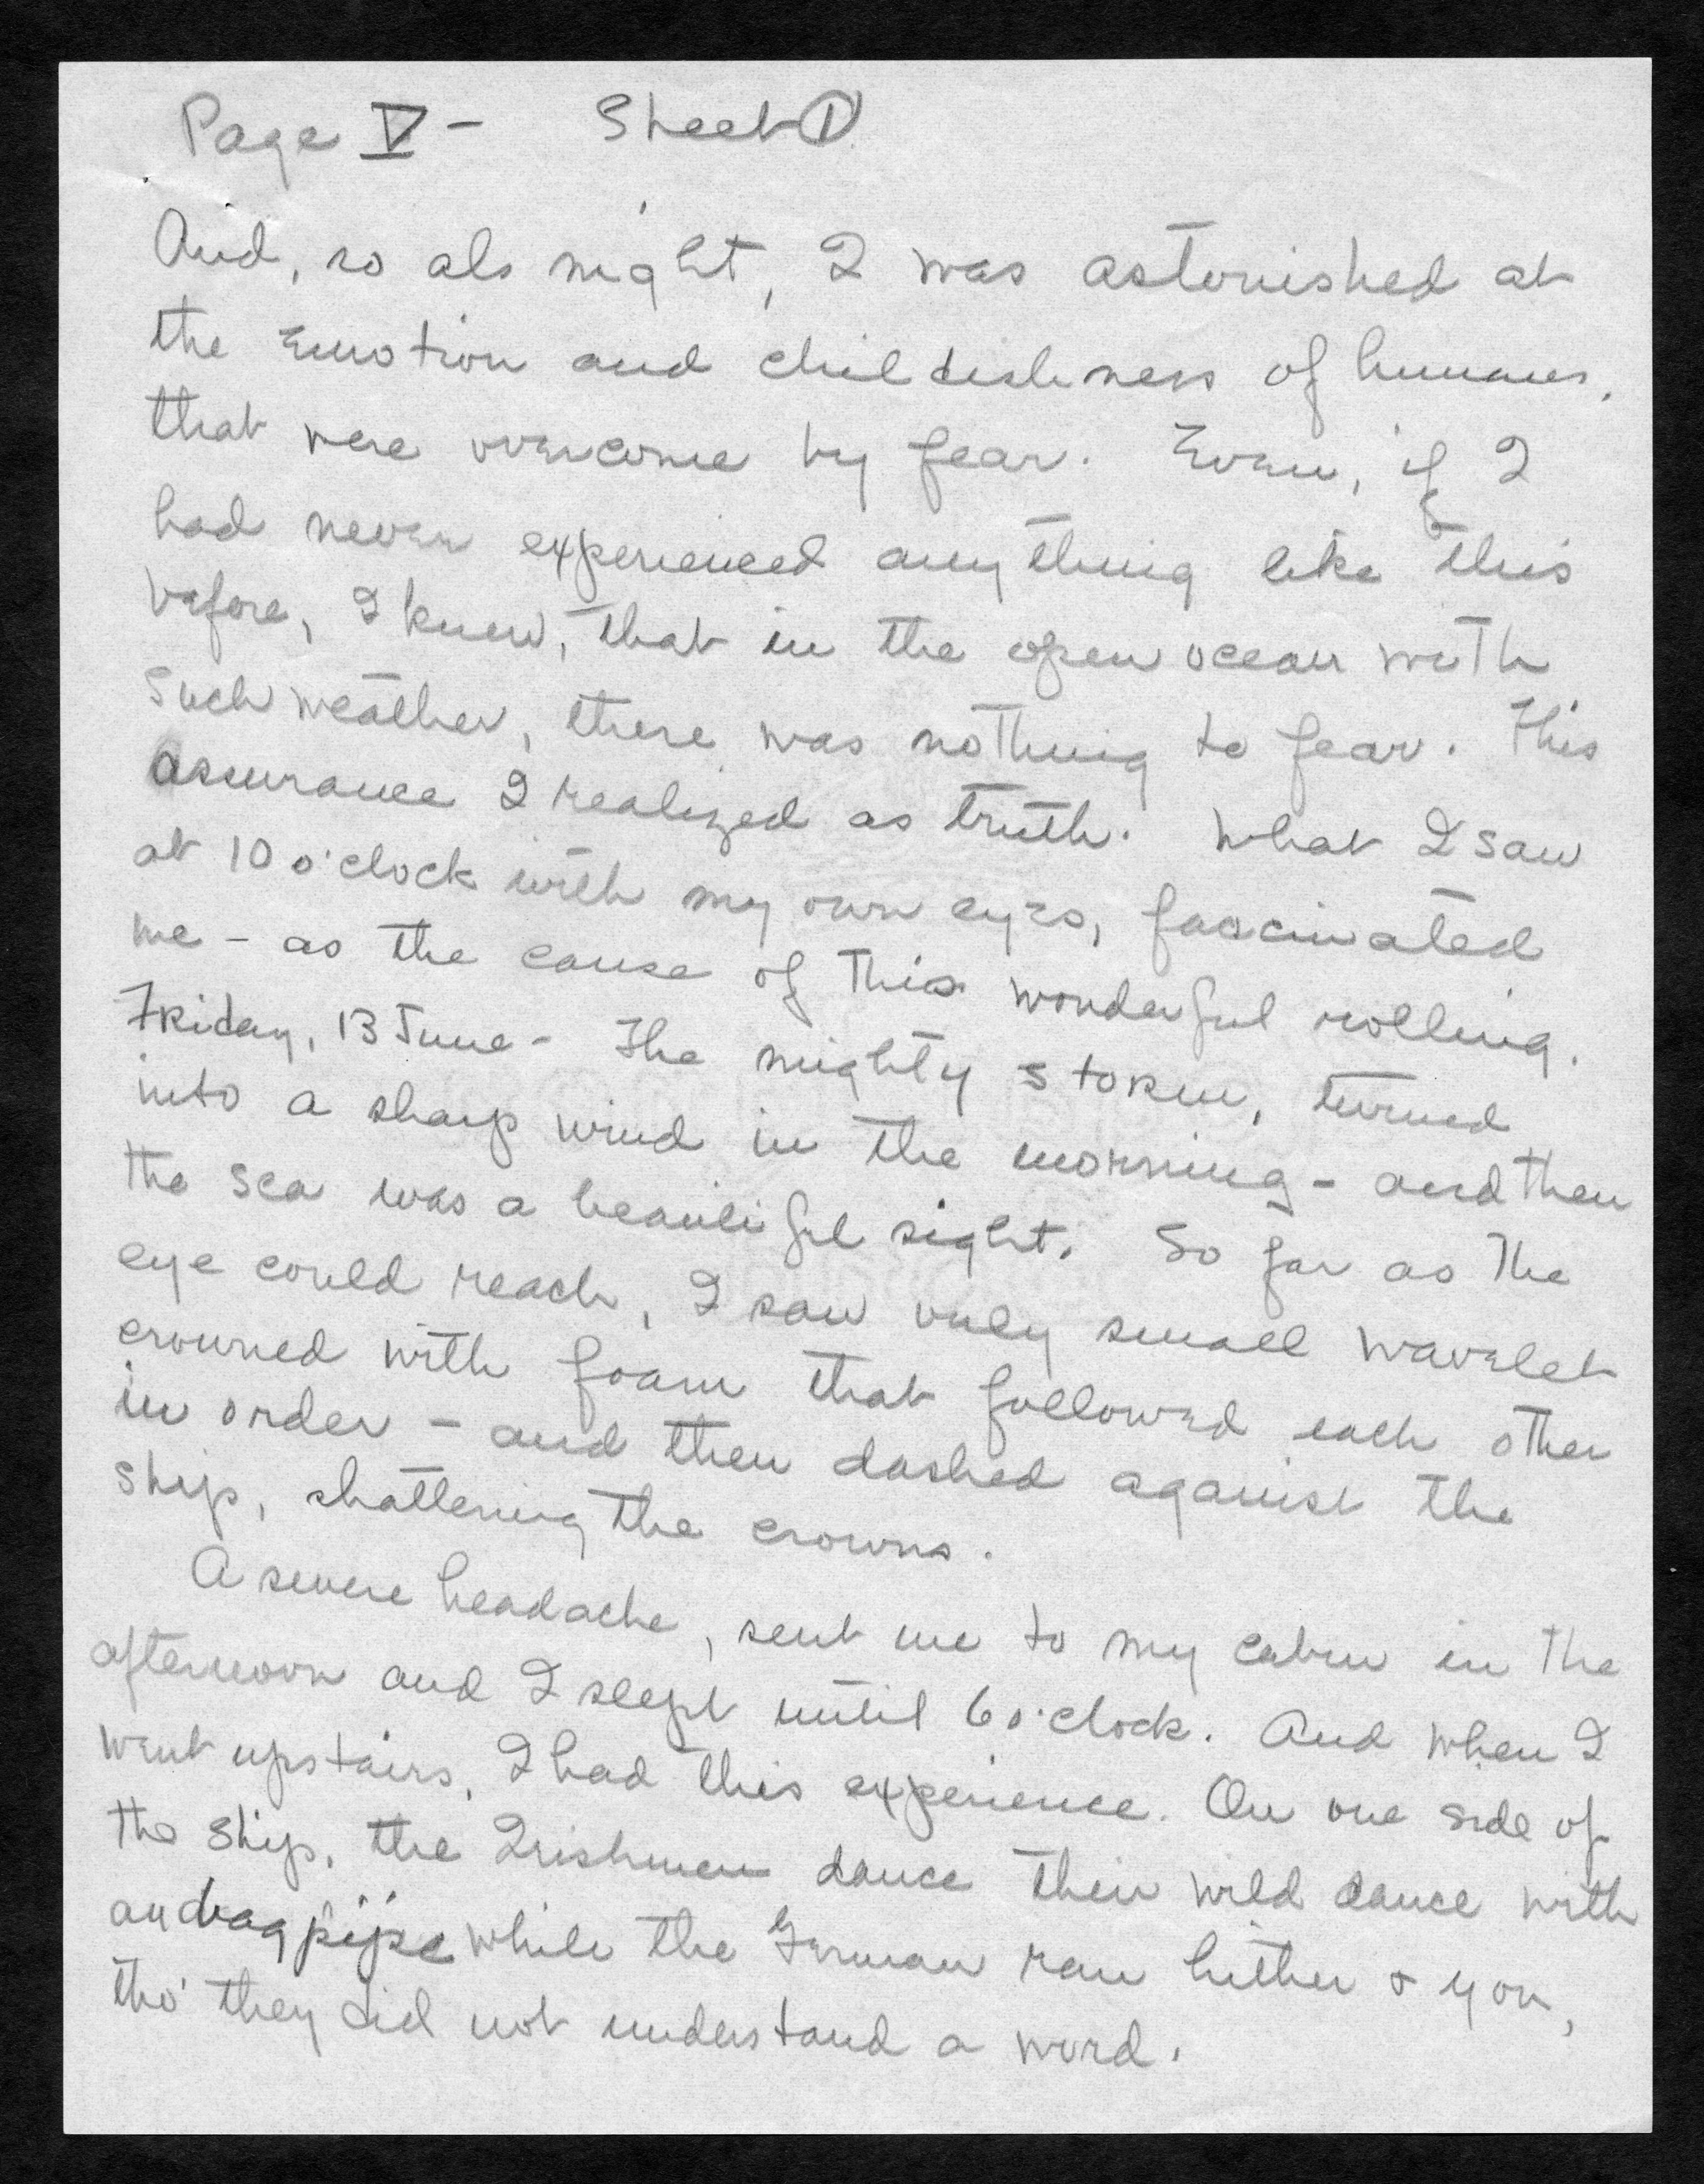 Page V - Sheet 1
And, so als night, I was astonished at
the Emotion and childishness of humans,
that were overcome by fear. Even, if I
had never experienced anything like this
before, I knew, that in the open ocean with
such weather, there was nothing to fear. This
assurance I realized as truth. What I saw
at 10 o'clock with my own eyes, fascinated
me - as the cause of this wonderful rolling.
Friday, 13 June - The mighty storm, turned
into a sharp wind in the morning - and then
the sea was a beautiful sight. So far as the
eye could reach, I saw only small wavelet
crowned with foam that followed each other
in order - and then dashed against the
ship, shattering the crowns.
A severe headache, sent me to my cabin in the
afternoon and I slept until 6 o'clock. And when I
went upstairs, I had this experience. On one side of
the ship, the Irishmen dance their wild dance with
bagpipe while the German ran hither & yon,
tho' they did not understand a word.